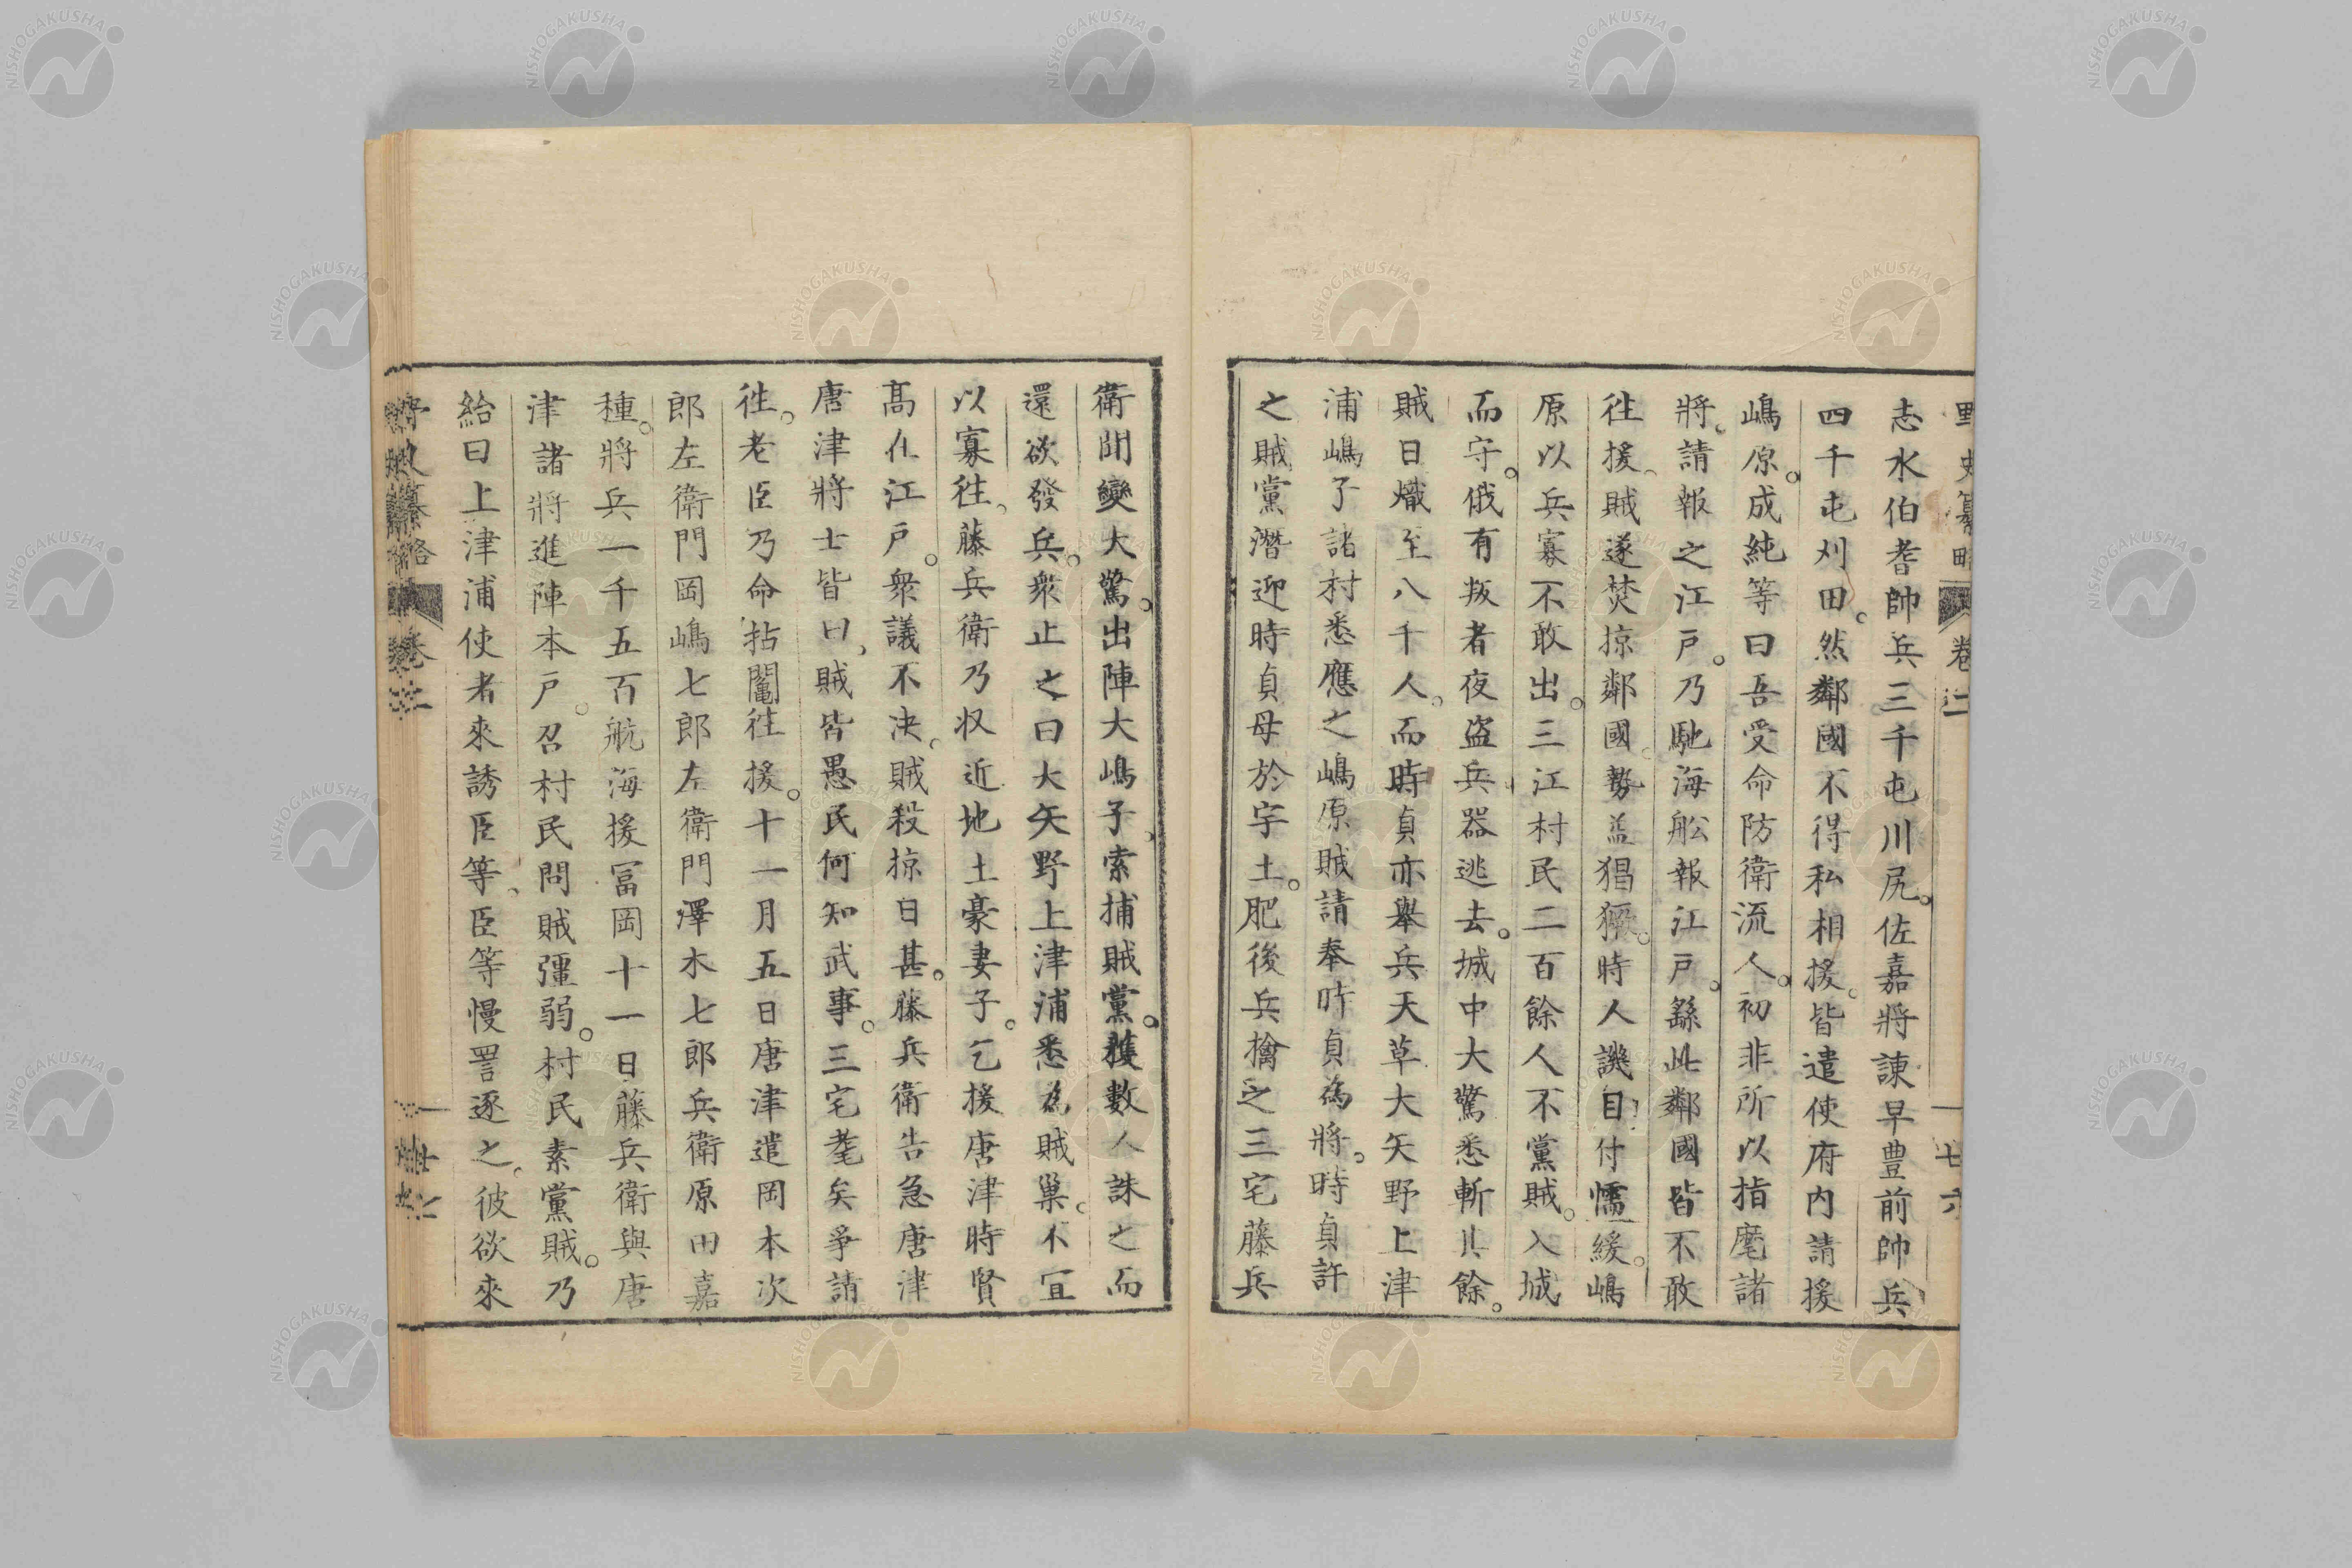 志水伯耆帥兵三千屯川尻。佐嘉將諫早豊前帥兵
四千屯刈田。然鄰國不得私相援。皆遣使府内請援
嶋原。成純等曰吾受命防衛流人。初非所以指麾諸
將。請報之江戸。乃馳海舩報江戸。繇此鄰國皆不敢
徃援。賊遂焚掠鄰國。勢益猖獗。時人譏目付懦緩。嶋
原以兵寡不敢出。三江村民二百餘人不黨賊。入城
而守。俄有叛者夜盗兵器逃去。城中大驚悉斬其餘。
賊日熾至八千人。而時貞亦舉兵天草大矢野上津
浦嶋子諸村悉應之嶋原賊請奉時貞為將。時貞許
之賊黨潛迎時貞母於宇土。肥後兵擒之三宅藤兵
衛聞變大驚。出陣大嶋子。索捕賊黨。獲數人誅之而
還欲發兵。衆止之曰大矢野上津浦悉為賊巢。不宜
以寡徃。藤兵衛乃収近地土豪妻子。乞援唐津時賢
髙在江戸。衆議不决。賊殺掠日甚。藤兵衛告急唐津
唐津將士皆曰、賊皆愚民何知武事。三宅耄矣爭請
徃。老臣乃命拈鬮徃援。十一月五日唐津遣岡本次
郎左衛門岡嶋七郎左衛門澤木七郎兵衛原田嘉
種。將兵一千五百航海援冨岡十一日藤兵衛與唐
津諸將進陣本戸。召村民問賊彊弱。村民素黨賊。乃
紿曰上津浦使者來誘臣等。臣等慢詈逐之。彼欲來